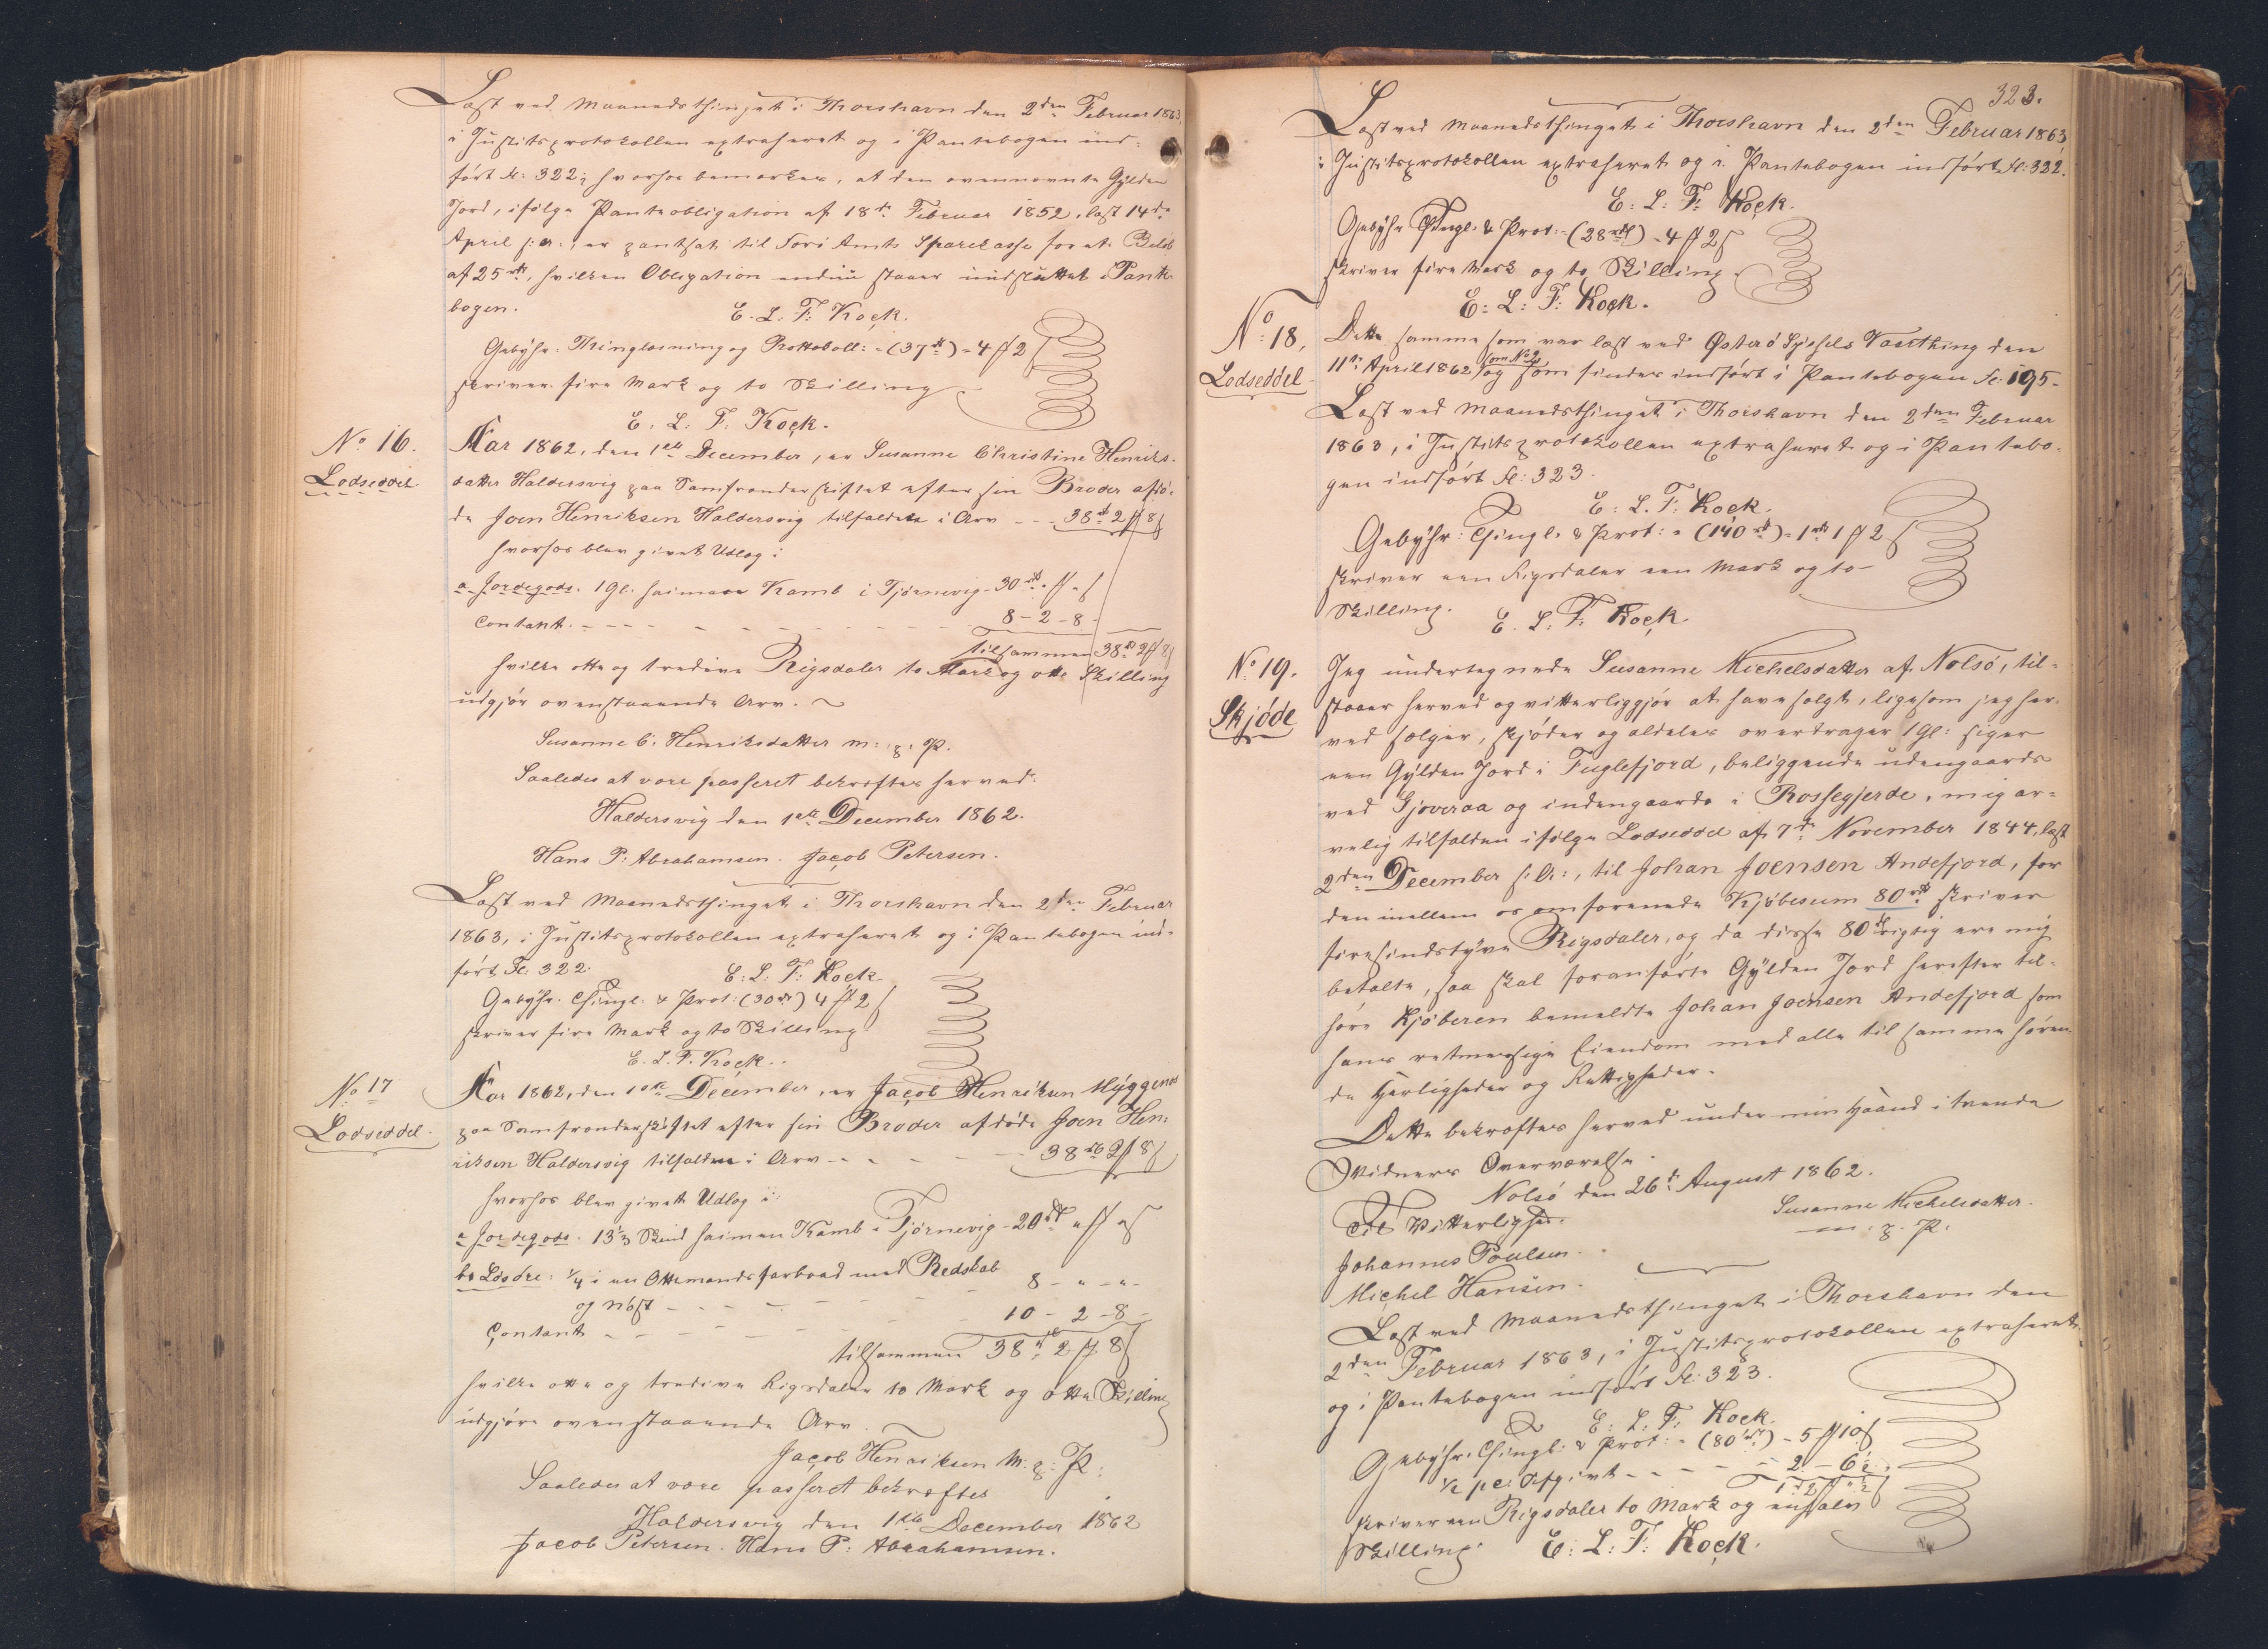 Læst ved Maanedsthinget i Thorshavn den 2den Februar 1863,
i Justitsprotokollen extraheret og i Pantebogen ind-
ført fl: 322; hvorhos bemærkes, at den ovennævnte Gylden
Jord, ifølge Panteobligation af 18de Februar 1852, læst 14de
April s: A:, er pantsat til Færø Amts Sparekasse for et Beløb
af 25 rd, hvilken Obligation endnu staaer uudslettet i Pante
bogen.
E. L. F. Kock.
Gebyhr: Thinglæsning og Prottokoll: - (37 rd) - 4 # 2 ß
skriver fire Mark og to Skilling
E: L: F: Kock.
No 16.
Lodseddel.
Aar 1862, den 1ste December, er Susanne Christine Henriks-
datter Haldersvig paa Samfrænderskiftet efter sin Broder afdø-
de Joen Henriksen Haldersvig tilfalden i Arv - - - 38 rd 2 # 8 ß
hvorfor blev givet Udlæg i:
a Jordegods. 1 Gl. haimara Kamb i Tjørnevig - 30 rd " # " ß
Contant. - - - - - - - - 8 - 2 - 8 -
tilsammen 38 rd 2 # 8 ß
hvilke otte og tredive Rigsdaler to Mark og otte Skilling
udgjør ovenstaaende Arv. ~
Susanne C: Henriksdatter m: p: P.
Saaledes at være passeret bekræftes herved:
Haldersvig den 1ste December 1862.
Hans P: Abrahamsen. Jacob Petersen.
Læst ved Maanedsthinget i Thorshavn den 2den Februar
1863, i Justitsprotokollen extraheret og i Pantebogen ind-
ført Fl: 322.
E: L: F: Kock.
Gebyhr. Thingl: & Prot: (30 rd) 4 # 2 ß
skriver fire Mark og to Skilling
E. L. F. Kock.
No 17
Lodseddel.
Aar 1862, den 1ste December, er Jacob Henriksen Myggenæs
paa Samfrænderskiftet efter sin Broder afdøde Joen Hen-
riksen Haldersvig tilfalden i Arv - - - - - 38 rd 2 # 8 ß
hvorfor blev givet Udlæg i:
a Jordegods. 13 1/3 Skind haimara Kamb i Tjørnevig - 20 rd " # " ß
b Løsøre: 1/4 i en Ottemandsfarbaad med Redskab
og Nøst - - - - - - 8 - " - " -
Contant - - - - - - 10 - 2 - 8 -
tilsammen 38 rd 2 # 8 ß
hvilke otte og tredive Rigsdaler to Mark og otte Skilling
udgjøre ovenstaaende Arv.
Jacob Henriksen M: p: P:
Saaledes at være passeret bekræftes
Haldersvig den 1ste December 1862
Jacob Petersen. Hans P: Abrahamsen.
323.
Læst ved Maanedsthinget i Thorshavn den 2den Februar 1863,
i Justitsprotokollen extraheret og i Pantebogen indført fl: 322.
E: L: F: Kock.
Gebyhr Thngl: & Prot: - (28 rd) - 4 # 2 ß
skriver fire Mark og to Skilling
E: L: F: Kock.
No 18,
Lodseddel
Dette samme som var læst ved Østerø Syssels Vaarthing den
11te April 1862 som No 2 og som findes indført i Pantebogen Fl: 195-
Læst ved Maanedsthinget i Thorshavn den 2den Februar
1863, i Justitsprotokollen extraheret og i Pantebo-
gen indført fl: 323.
E: L: F: Kock.
Gebyhr: Thingl: & Prot: - (140 rd) - 1 rd 1 # 2 ß
skriver een Rigsdaler een Mark og to
Skilling.
E. L: F. Kock
No 19.
Skjøde
Jeg undertegnede Susanne Michelsdatter af Nolsø, til-
staaer herved og vitterliggjør at have solgt, ligesom jeg her-
ved sælger, skjøder og aldeles overtrager 1 Gl: siger
een Gylden Jord i Fuglefjord, beliggende udengaards
ved Gjoveraa og indengaards i Rossegjerde, mig ar-
velig tilfalden ifølge Lodseddel af 7de November 1844, læst
2den December s: A:, til Johan Joensen Andefjord, for
den imellem os omforenede Kjøbesum 80 rd skriver
firesindstyve Rigsdaler, og da disse 80 rd rigtig ere mig
betalte, saa skal foranførte Gylden Jord herefter til-
høre Kjøberen bemeldte Johan Joensen Andefjord som
hans retmæssige Eiendom med alle til samme høren-
de Herligheder og Rettigheder.
Dette bekræftes herved under min Haand i tvende
Vidners Overværelse.
Nolsø den 26de August 1862.
Til Vitterlighed:
Susanne Michelsdatter.
m: p. P:
Johannes Poulsen.
Michel Hansen.
Læst ved Maanedsthinget i Thorshavn den
2den Februar 1863, i Justitsprotokollen extraheret
og i Pantebogen indført fl: 323.
E: L: F: Kock.
Gebyhr: Thingl: & Prot: - (80 rd) - 5 # 10 ß
1/2 pc: Afgivt - - - - - 2 - 6 1/2 -
1 rd 2 # " 1/2 ß
skriver een Rigsdaler to Mark og en halv
Skilling.
E: L: F: Kock.